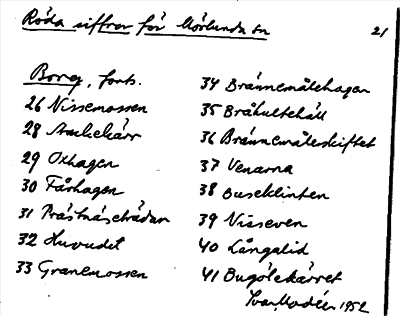 Röda siffror för Mörlunda sn
21
Borg, forts.
26 Nissemossen
28 Ankekärr
29 Oxhagen
30 Fårhagen
31 Prästnäsebrädan
32 Huvudet
33 Granemossen
34 Brännemålehagen
35 Bråhultehäll
36 Brännemåleskiftet
37 Venarna
38 Buseklinten
39 Nisseven
40 Långalid
41 Bugölekärret
Ivar Modéer 1952